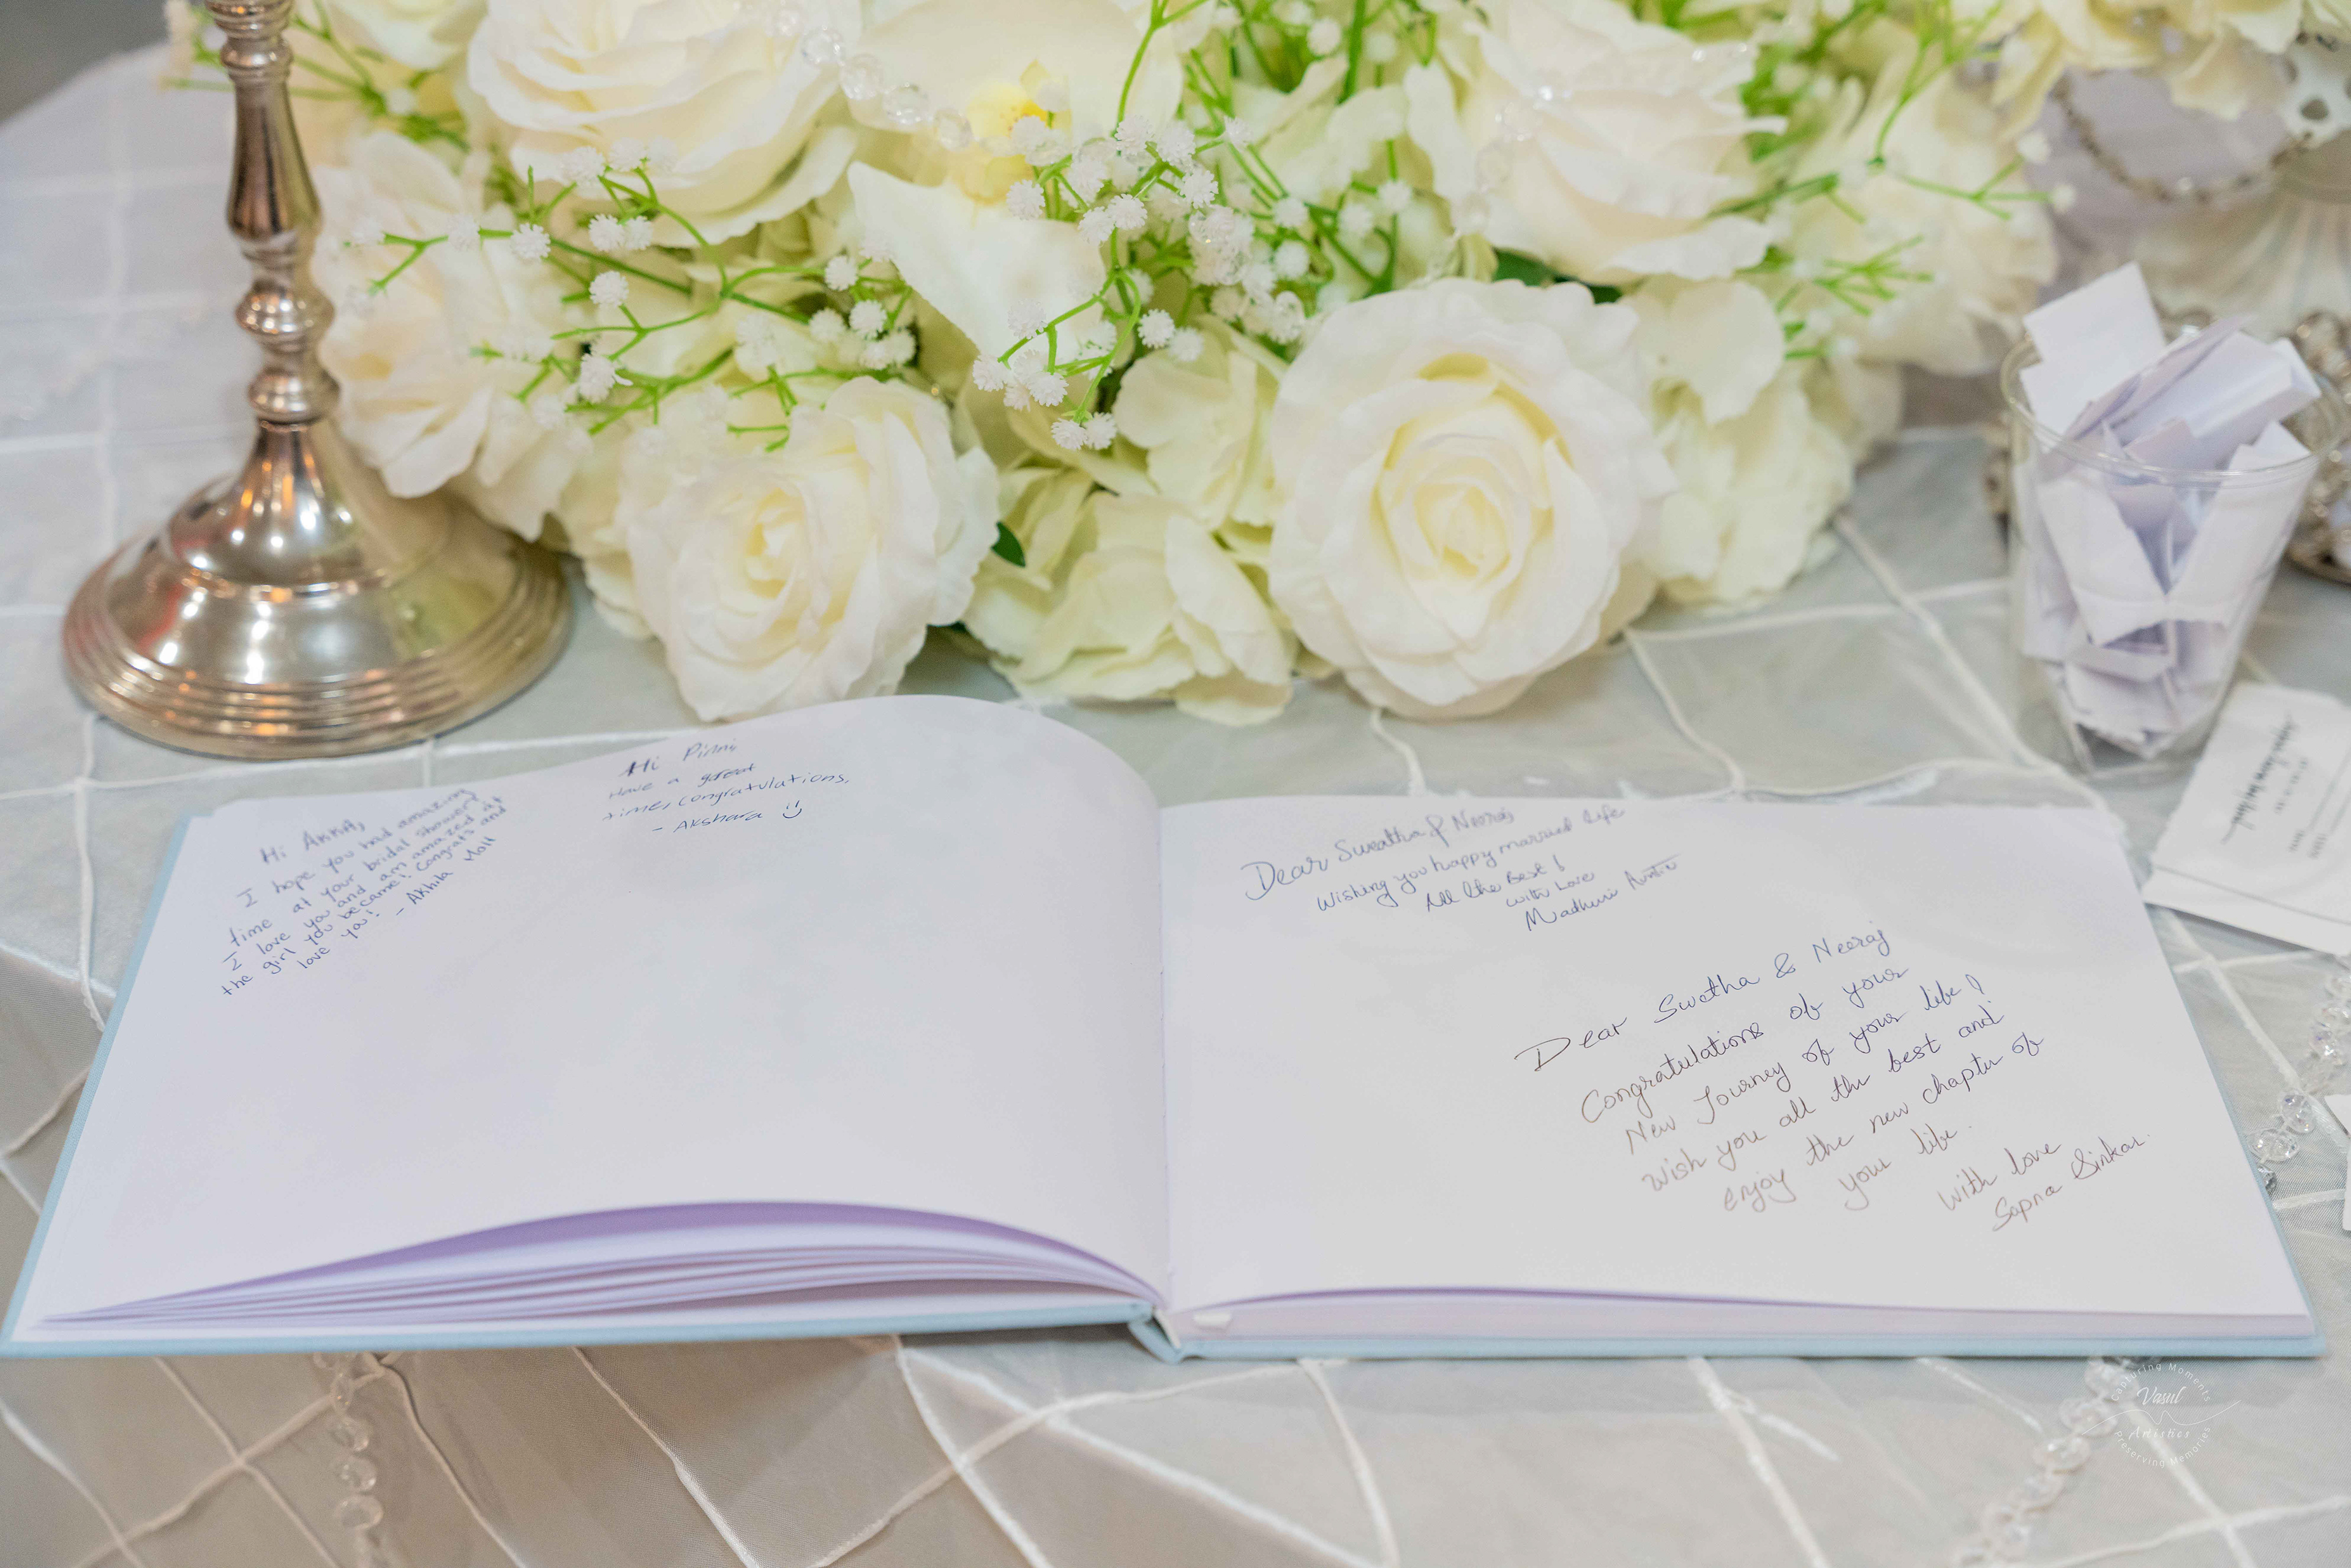 Hi Akka,
I hope you had amazing
time at your bridal shower!
I love you and am amazed at
the girl you became! Congrats and
love you! - Akhila Moll
Hi Pinni,
Have a great
time, congratulations,
- Akshara
Dear Swetha & Neeraj
Wishing you happy married life
All the Best!
with Love
Madhuri Auntie
Dear Swetha & Neeraj
Congratulations of your
New Journey of your life!
wish you all the best and
enjoy the new chapter of
your life.
with love
Sapna Sinkar.
Capturing Moments
Vasul
Artistics
Preserving Memories